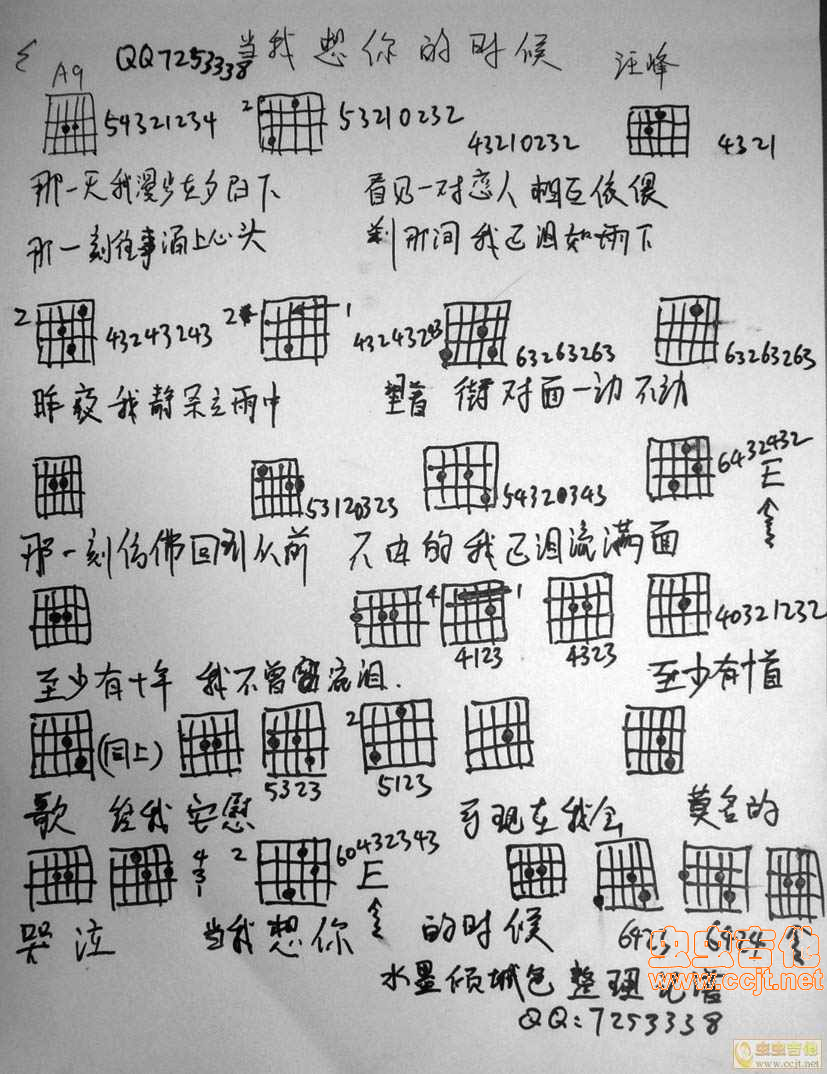 QQ7253338 当我想你的时候 汪峰
A9
54321234 2 53210232 43210232 4321
那一天我漫步在夕阳下 看见一对恋人相互依偎
那一刻往事涌上心头 刹那间我已泪如雨下
2 43243243 2 1 43243243 63263263 63263263
昨夜我静呆立雨中 望着街对面一动不动
53120323 54320343 6432432
E
那一刻仿佛回到从前 不由的我已泪流满面
4 1 4123 4323 40321232
至少有十年 我不曾流泪. 至少有十首
(同上) 5323 2 5123
歌 给我安慰 可现在我会 莫名的
4
3
1
2 60432343
E
哭泣 当我想你 的时候 6423 6424
水墨倾城色 整理记谱
QQ:7253338
虫虫吉他
www.ccjt.net
虫虫吉他
www.ccjt.net